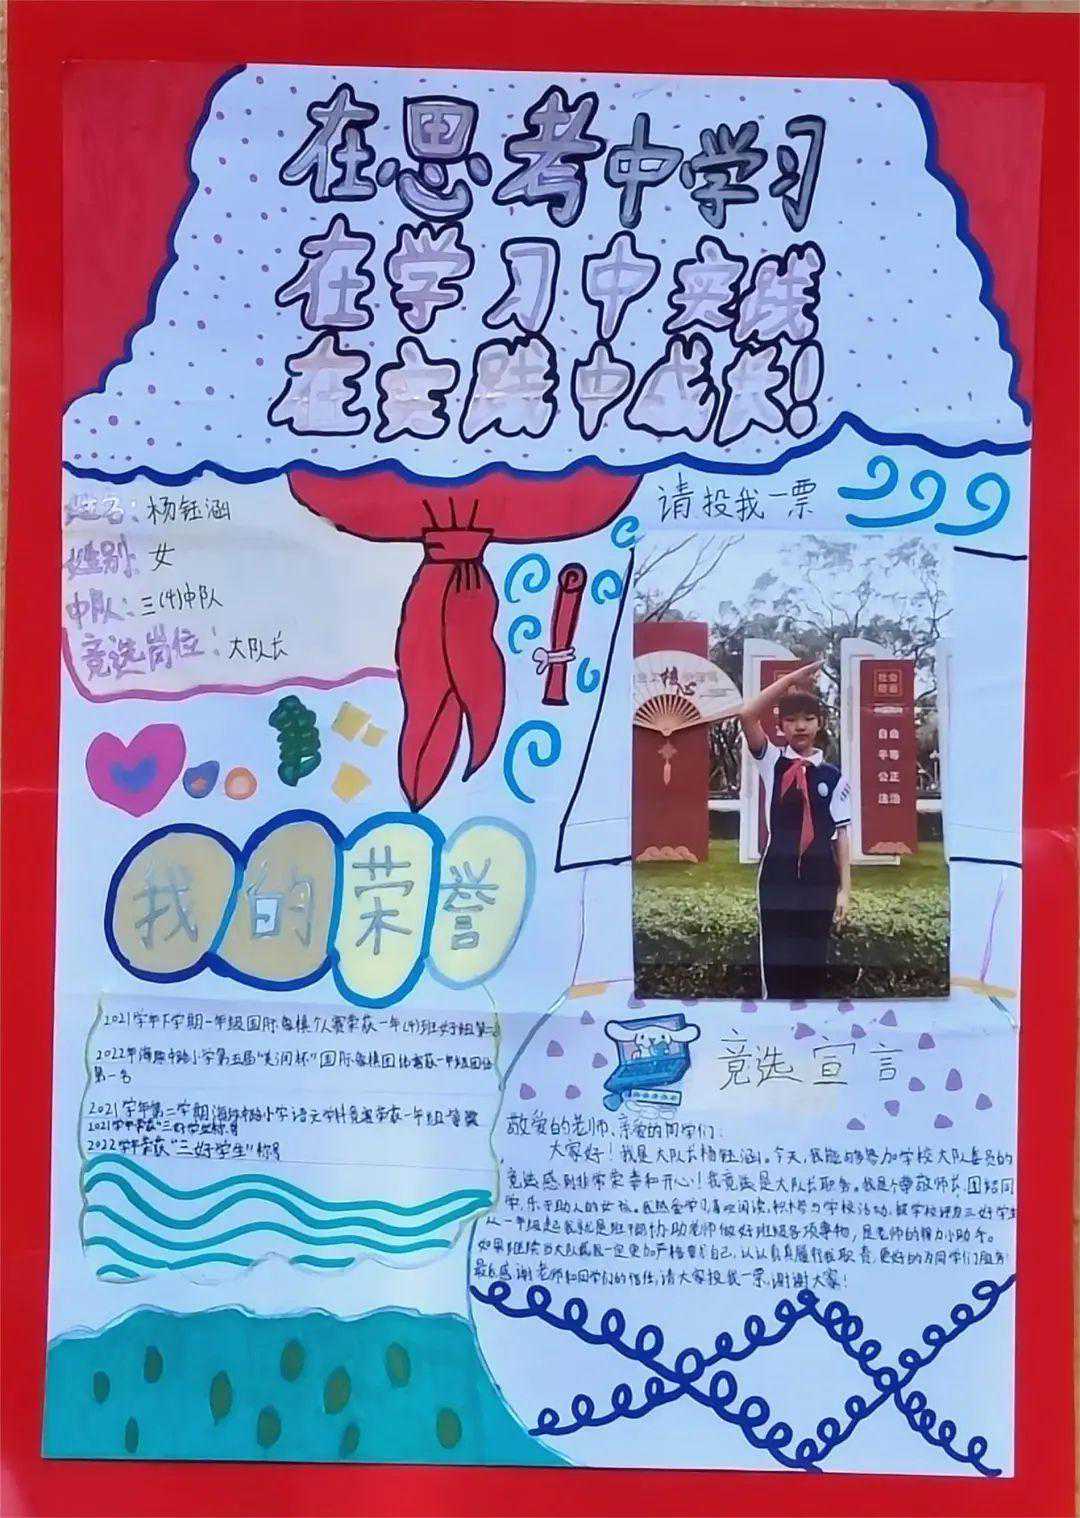 在思考中学习
在学习中实践
在实践中成长！
姓名：杨钰涵
性别：女
中队：三(4)中队
竞选岗位：大队长
请投我一票
自由
平等
公正
法治
我的荣誉
2021学年下学期一年级国际象棋个人赛荣获一年(4)班女子组第一
2022年海 中路小学第五届“美润杯”国际象棋团体赛获一年级团体
第一名
2021学年第二学期海 中路小学语文学科竞赛荣获一年组一等奖
2021学年荣获“三好学生”称号
2022学年荣获“三好学生”称号
竞选宣言
敬爱的老师、亲爱的同学们：
大家好！我是大队长杨钰涵。今天，我能够参加学校大队委员的
竞选感到非常荣幸和开心！我竞选是大队长职务。我是个尊敬师长、团结同
学，乐于助人的女孩。我热爱学习，喜欢阅读，积极参与学校活动，被学校评为三好学生
从一年级起我就是班干部，协助老师做好班级各项事物，是老师的得力小助手。
如果继续当大队 我一定更加严格要求自己，认认真真履行我职责，更好的为同学们服务
最后感谢老师和同学们的信任，请大家投我一票，谢谢大家！